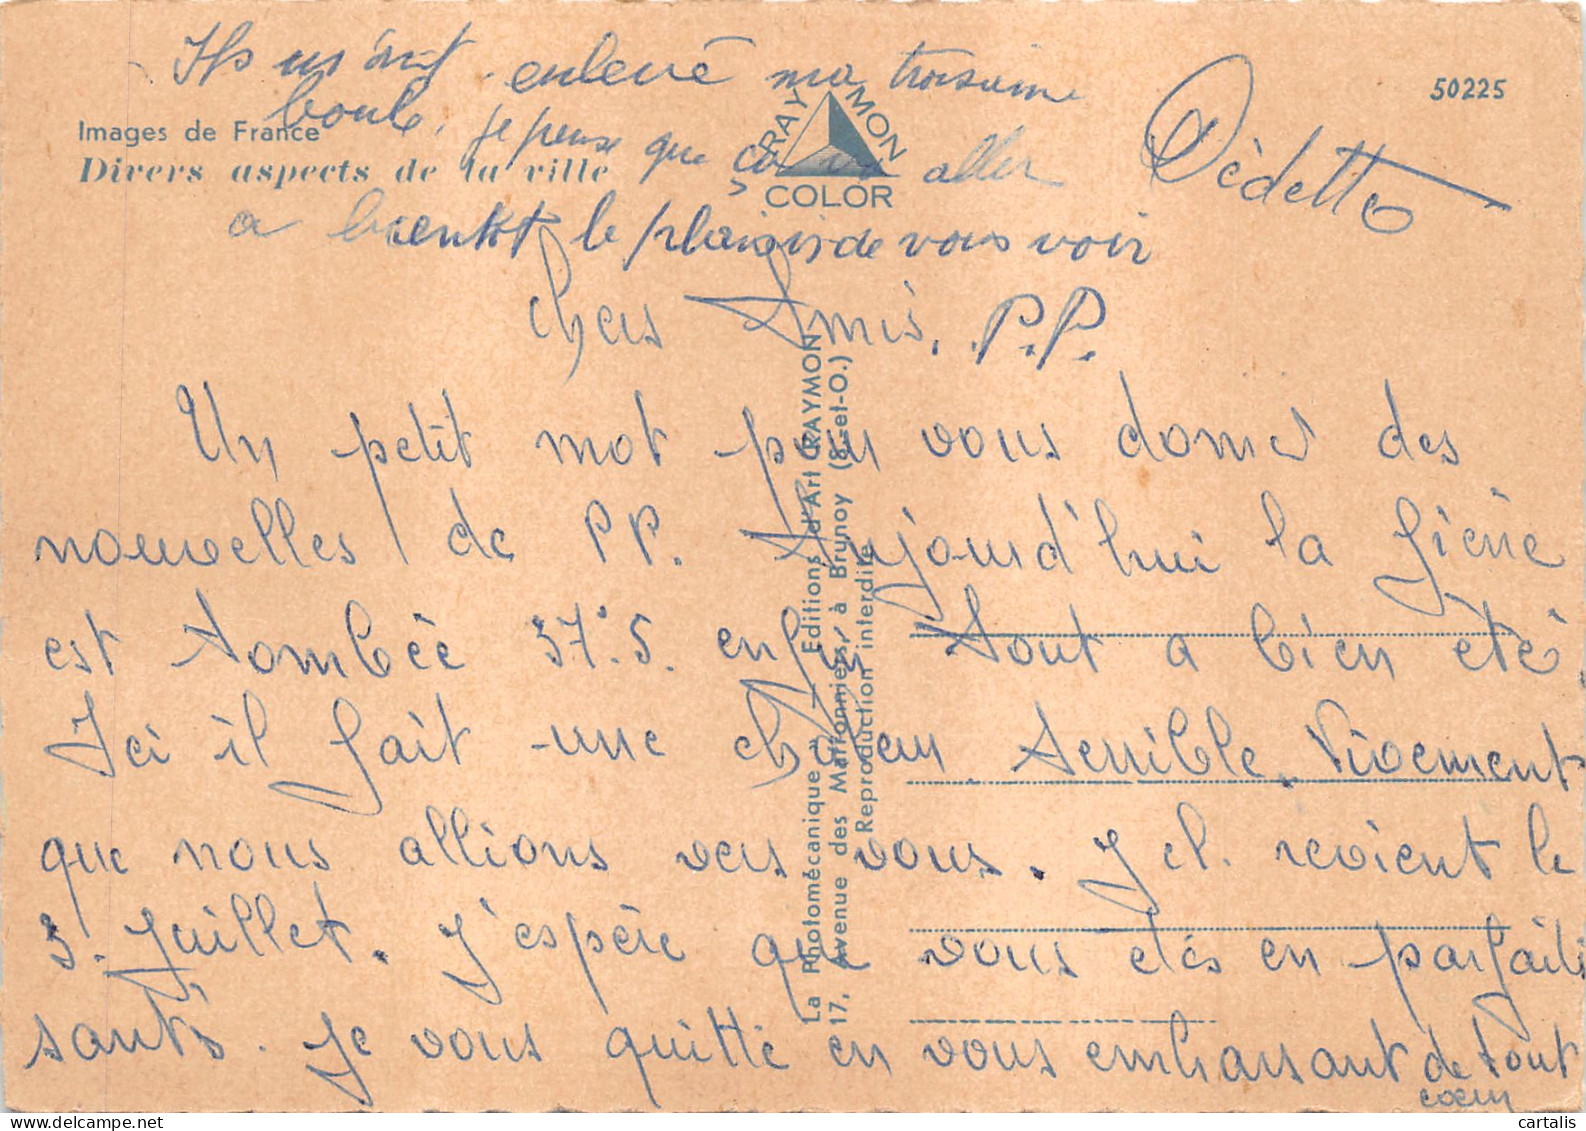 Ils m'ont enlevé ma troisieme
boule, je pense que ça va aller
a bientot le plaisir de vous voir
Dèdette
50225
Images de France
Divers aspects de la ville
RAYMON
COLOR
Chers Amis, P.P.
Un petit mot pour vous donner des
nouvelles de P.P. Aujourd'hui la fièvre
est tombée 37°.5. enfin tout a bien été,
Ici il fait une chaleur terrible. Vivement
que nous allions vers vous. revient le
3. Juillet. J'espère que vous etes en parfaite
santé. Je vous quitte en vous embrassant de tout
coeur
La Photomécanique — Editions d'Art RAYMON
17, Avenue des Marronniers, à Brunoy (S.-et-O.)
Reproduction interdite
cartalis